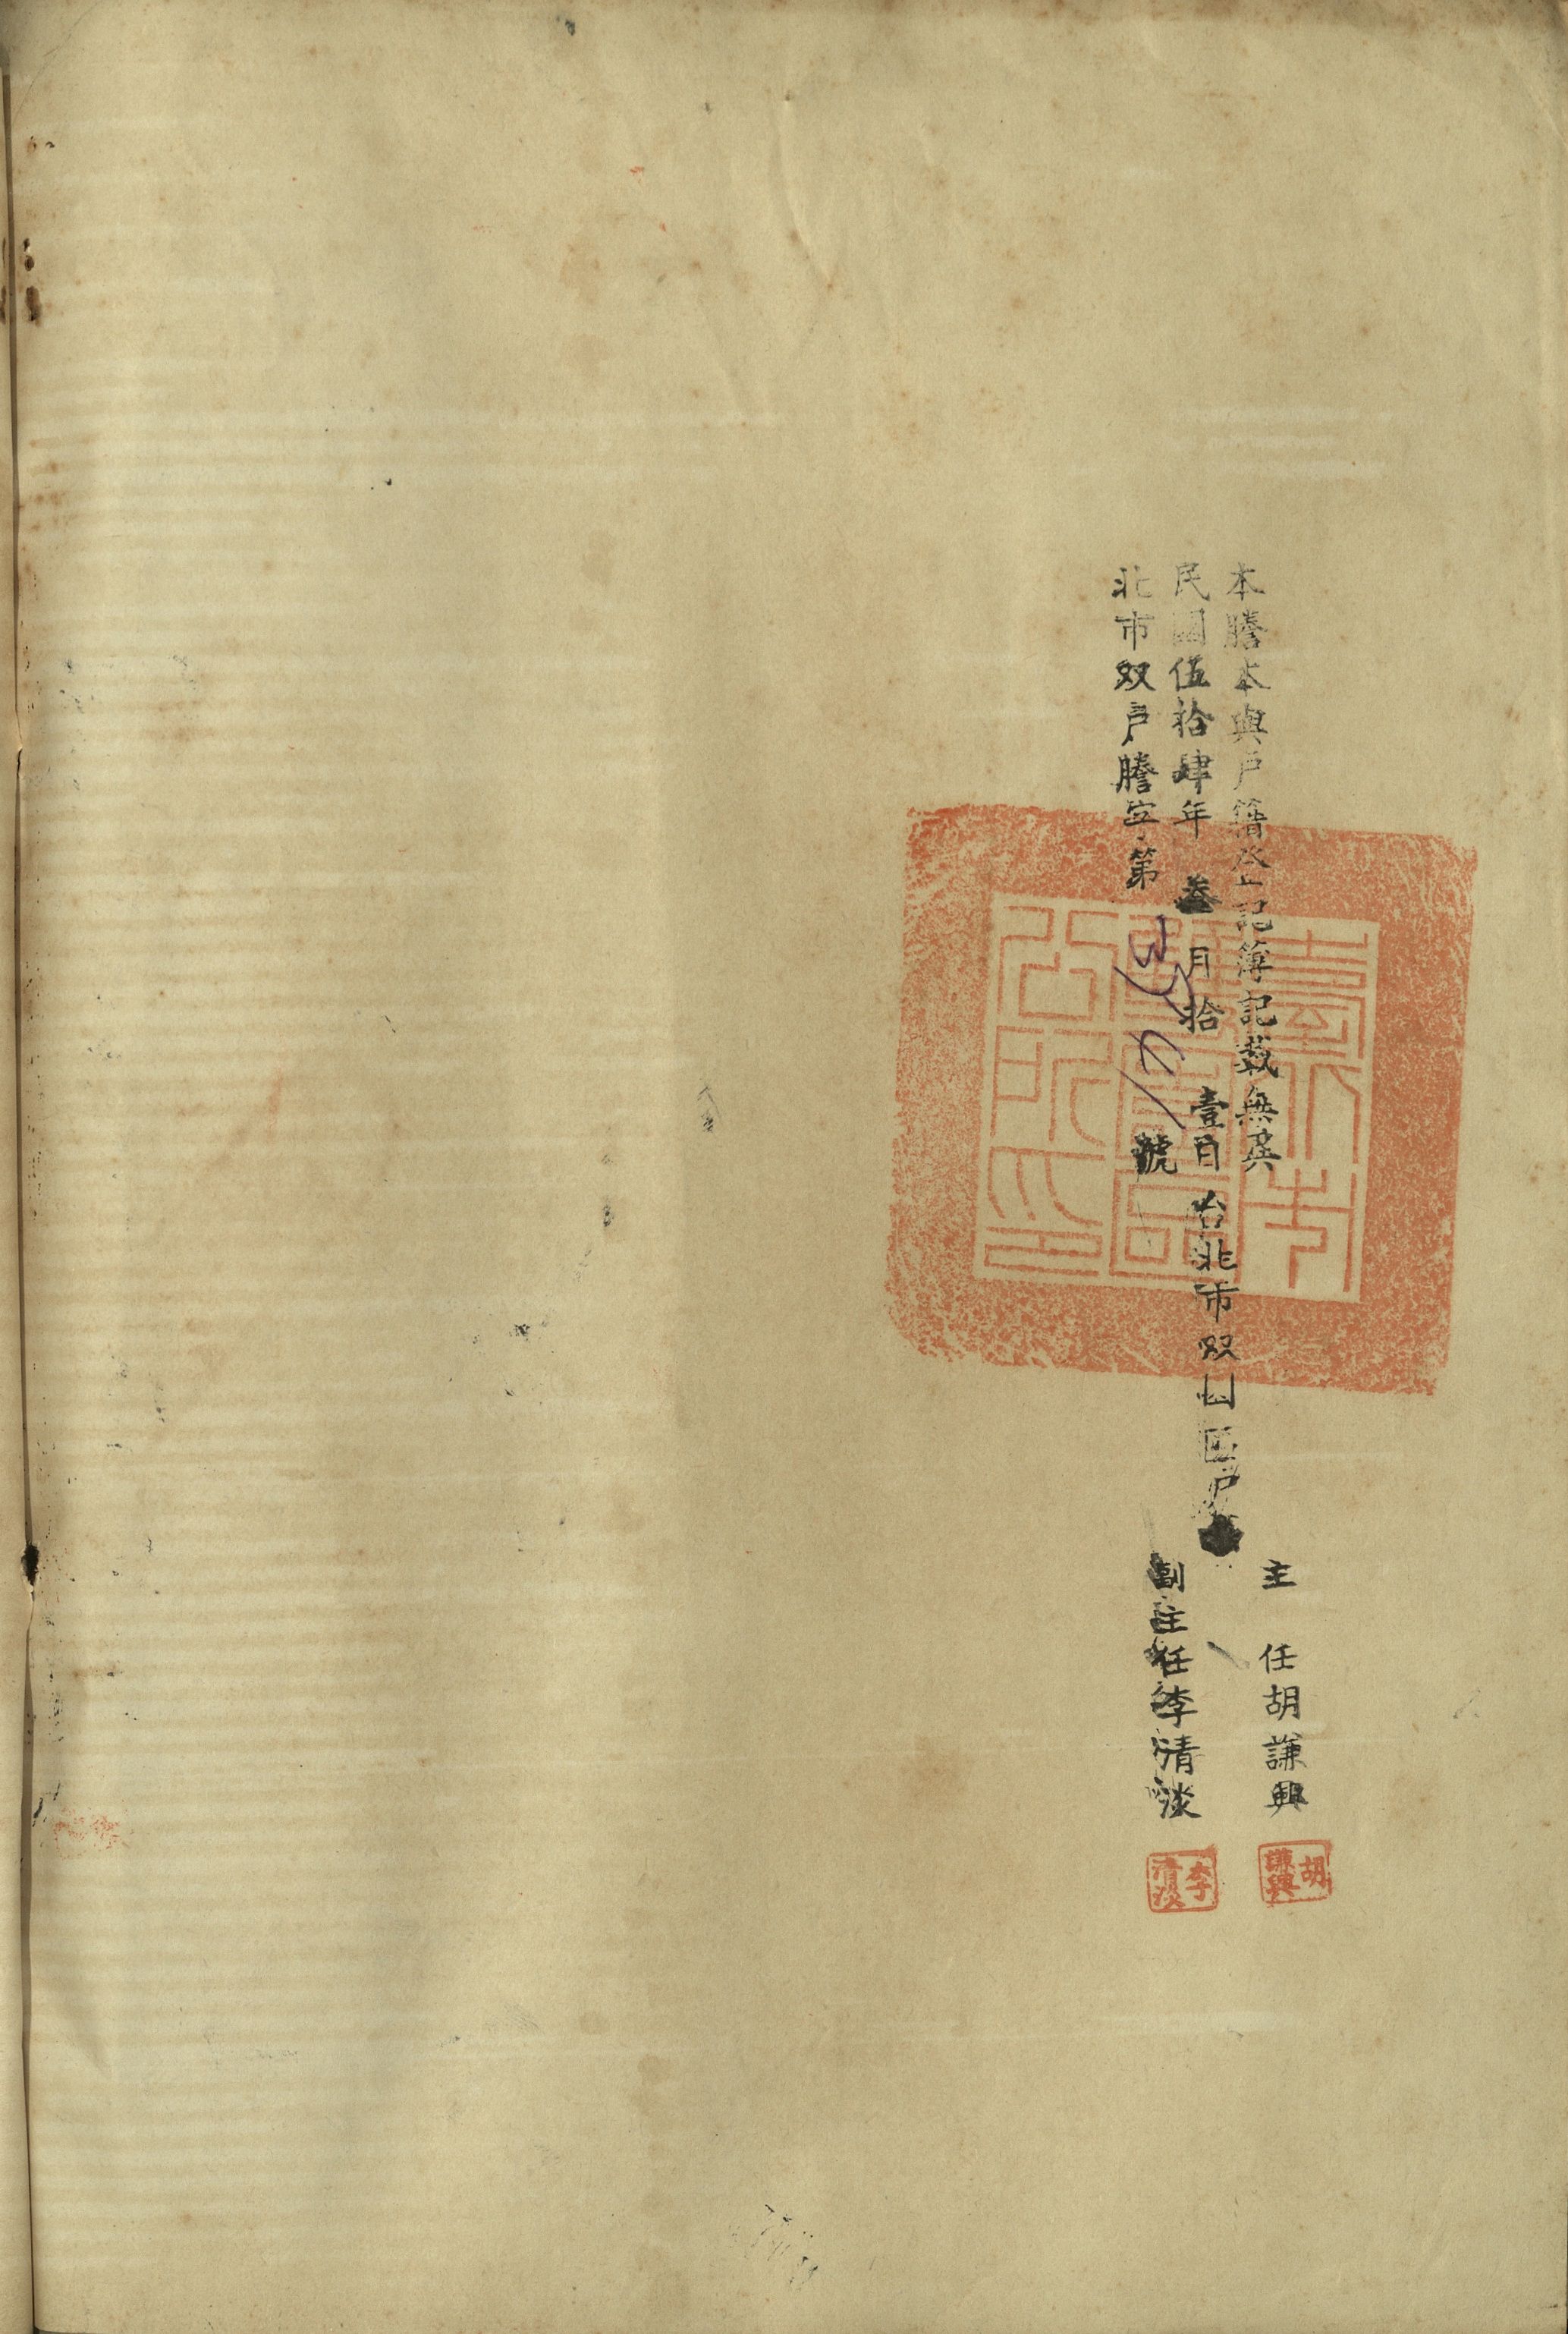 本謄本與戶籍登記簿記載無異
民國伍拾肆年叁月拾壹日台北市双園區戶
北市双戶謄字第號
主任胡謙興
副主任李清淡
胡謙興
李清淡
臺北市雙園區公所印